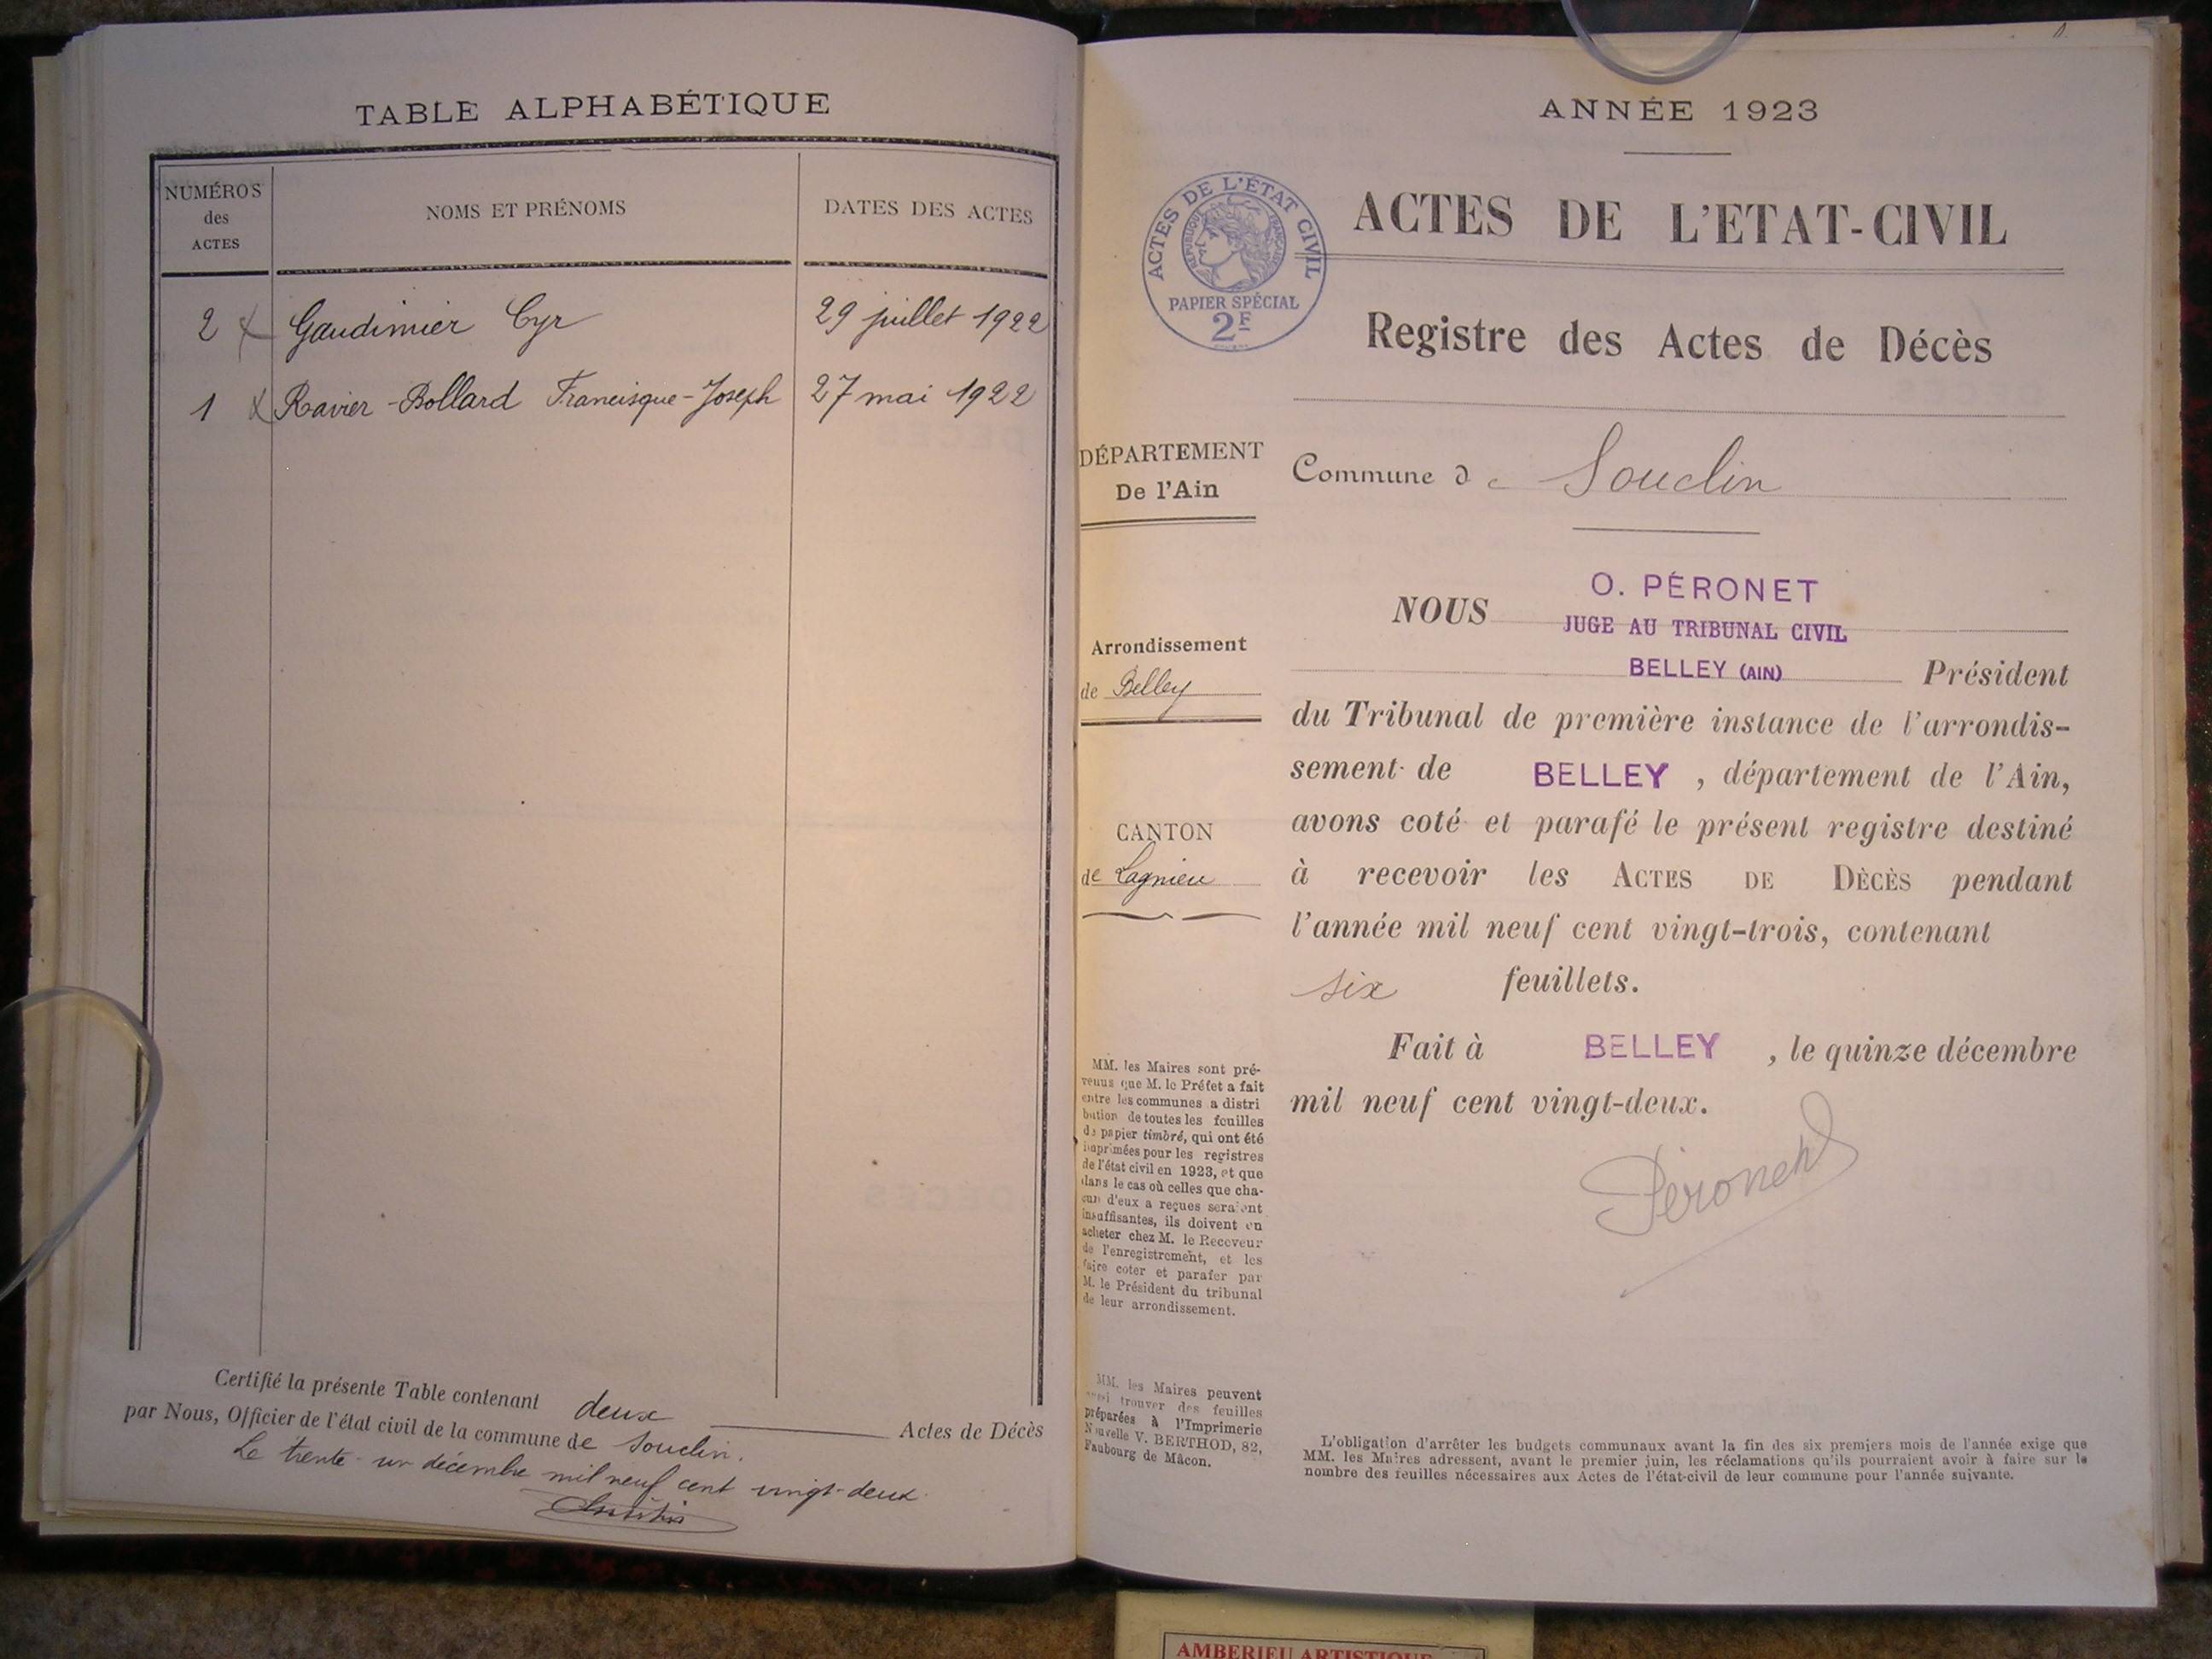 TABLE ALPHABÉTIQUE
NUMÉROS
des
ACTES
NOMS ET PRÉNOMS
DATES DES ACTES
2 Gaudimier Cyr 29 juillet 1922
1 Ravier-Bollard Francisque-Joseph 27 mai 1922
Certifié la présente Table contenant deux Actes de Décès
par Nous, Officier de l'état civil de la commune de Souclin.
Le trente-un décembre mil neuf cent vingt-deux.
ANNÉE 1923
ACTES DE L'ÉTAT CIVIL
RÉPUBLIQUE FRANÇAISE
PAPIER SPÉCIAL
2F
ACTES DE L'ETAT-CIVIL
Registre des Actes de Décès
DÉPARTEMENT
De l'Ain
Commune de Souclin
Arrondissement
de Belley
CANTON
de Lagnieu
NOUS O. PÉRONET
JUGE AU TRIBUNAL CIVIL
BELLEY (AIN) Président
du Tribunal de première instance de l'arrondis-
sement de BELLEY, département de l'Ain,
avons coté et parafé le présent registre destiné
à recevoir les ACTES DE DÈCÈS pendant
l'année mil neuf cent vingt-trois, contenant
six feuillets.
Fait à BELLEY, le quinze décembre
mil neuf cent vingt-deux.
Péronet
MM. les Maires sont pré-
venus que M. le Préfet a fait
entre les communes a distri
bution de toutes les feuilles
de papier timbré, qui ont été
imprimées pour les registres
de l'état civil en 1923, et que
dans le cas où celles que cha-
cun d'eux a reçues seraient
insuffisantes, ils doivent en
acheter chez M. le Receveur
de l'enregistrement, et les
faire coter et parafer par
M. le Président du tribunal
de leur arrondissement.
MM. les Maires peuvent
aussi trouver des feuilles
préparées à l'Imprimerie
Nouvelle V. BERTHOD, 82,
Faubourg de Mâcon.
L'obligation d'arrêter les budgets communaux avant la fin des six premiers mois de l'année exige que
MM. les Maires adressent, avant le premier juin, les réclamations qu'ils pourraient avoir à faire sur le
nombre des feuilles nécessaires aux Actes de l'état-civil de leur commune pour l'année suivante.
AMBERIEU ARTISTIQUE